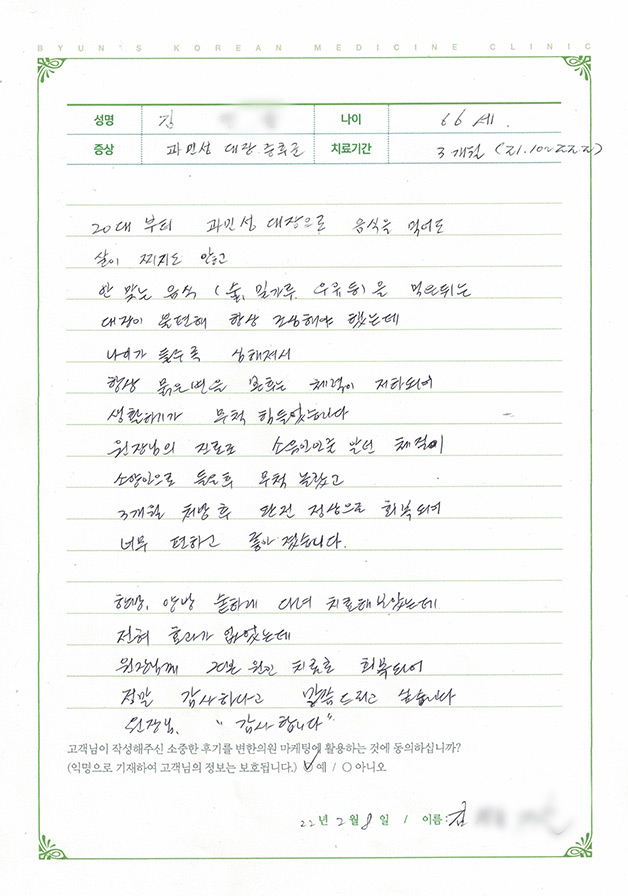 BYUN'S KOREAN MEDICINE CLINIC
성명 김 나이 66세.
증상 과민성 대장 증후군 치료기간 3개월 (21.10~22.2)
20대 부터 과민성 대장으로 음식을 먹어도
살이 찌지도 않고
안 맞는 음식 (술, 밀가루, 우유등)을 먹은뒤는
대장이 불편해 항상 조심해야 했는데
나이가 들수록 심해져서
항상 묽은변을 본후는 체력이 저하되어
생활하기가 무척 힘들었습니다
원장님의 진료로 소음인인줄 알던 체질이
소양인으로 들은후 무척 놀랐고
3개월 처방후 완전 정상으로 회복되어
너무 편하고 좋아 졌습니다.
한방, 양방 숱하게 다녀 치료해보았는데
전혀 효과가 없었는데
원장님께 근본 원인 치료로 회복되어
정말 감사하다고 말씀드리고 싶습니다
원장님, "감사합니다"
고객님이 작성해주신 소중한 후기를 변한의원 마케팅에 활용하는 것에 동의하십니까?
(익명으로 기재하여 고객님의 정보는 보호됩니다.) ✓ 예 / ○ 아니오
22년 2월 8일 / 이름: 김